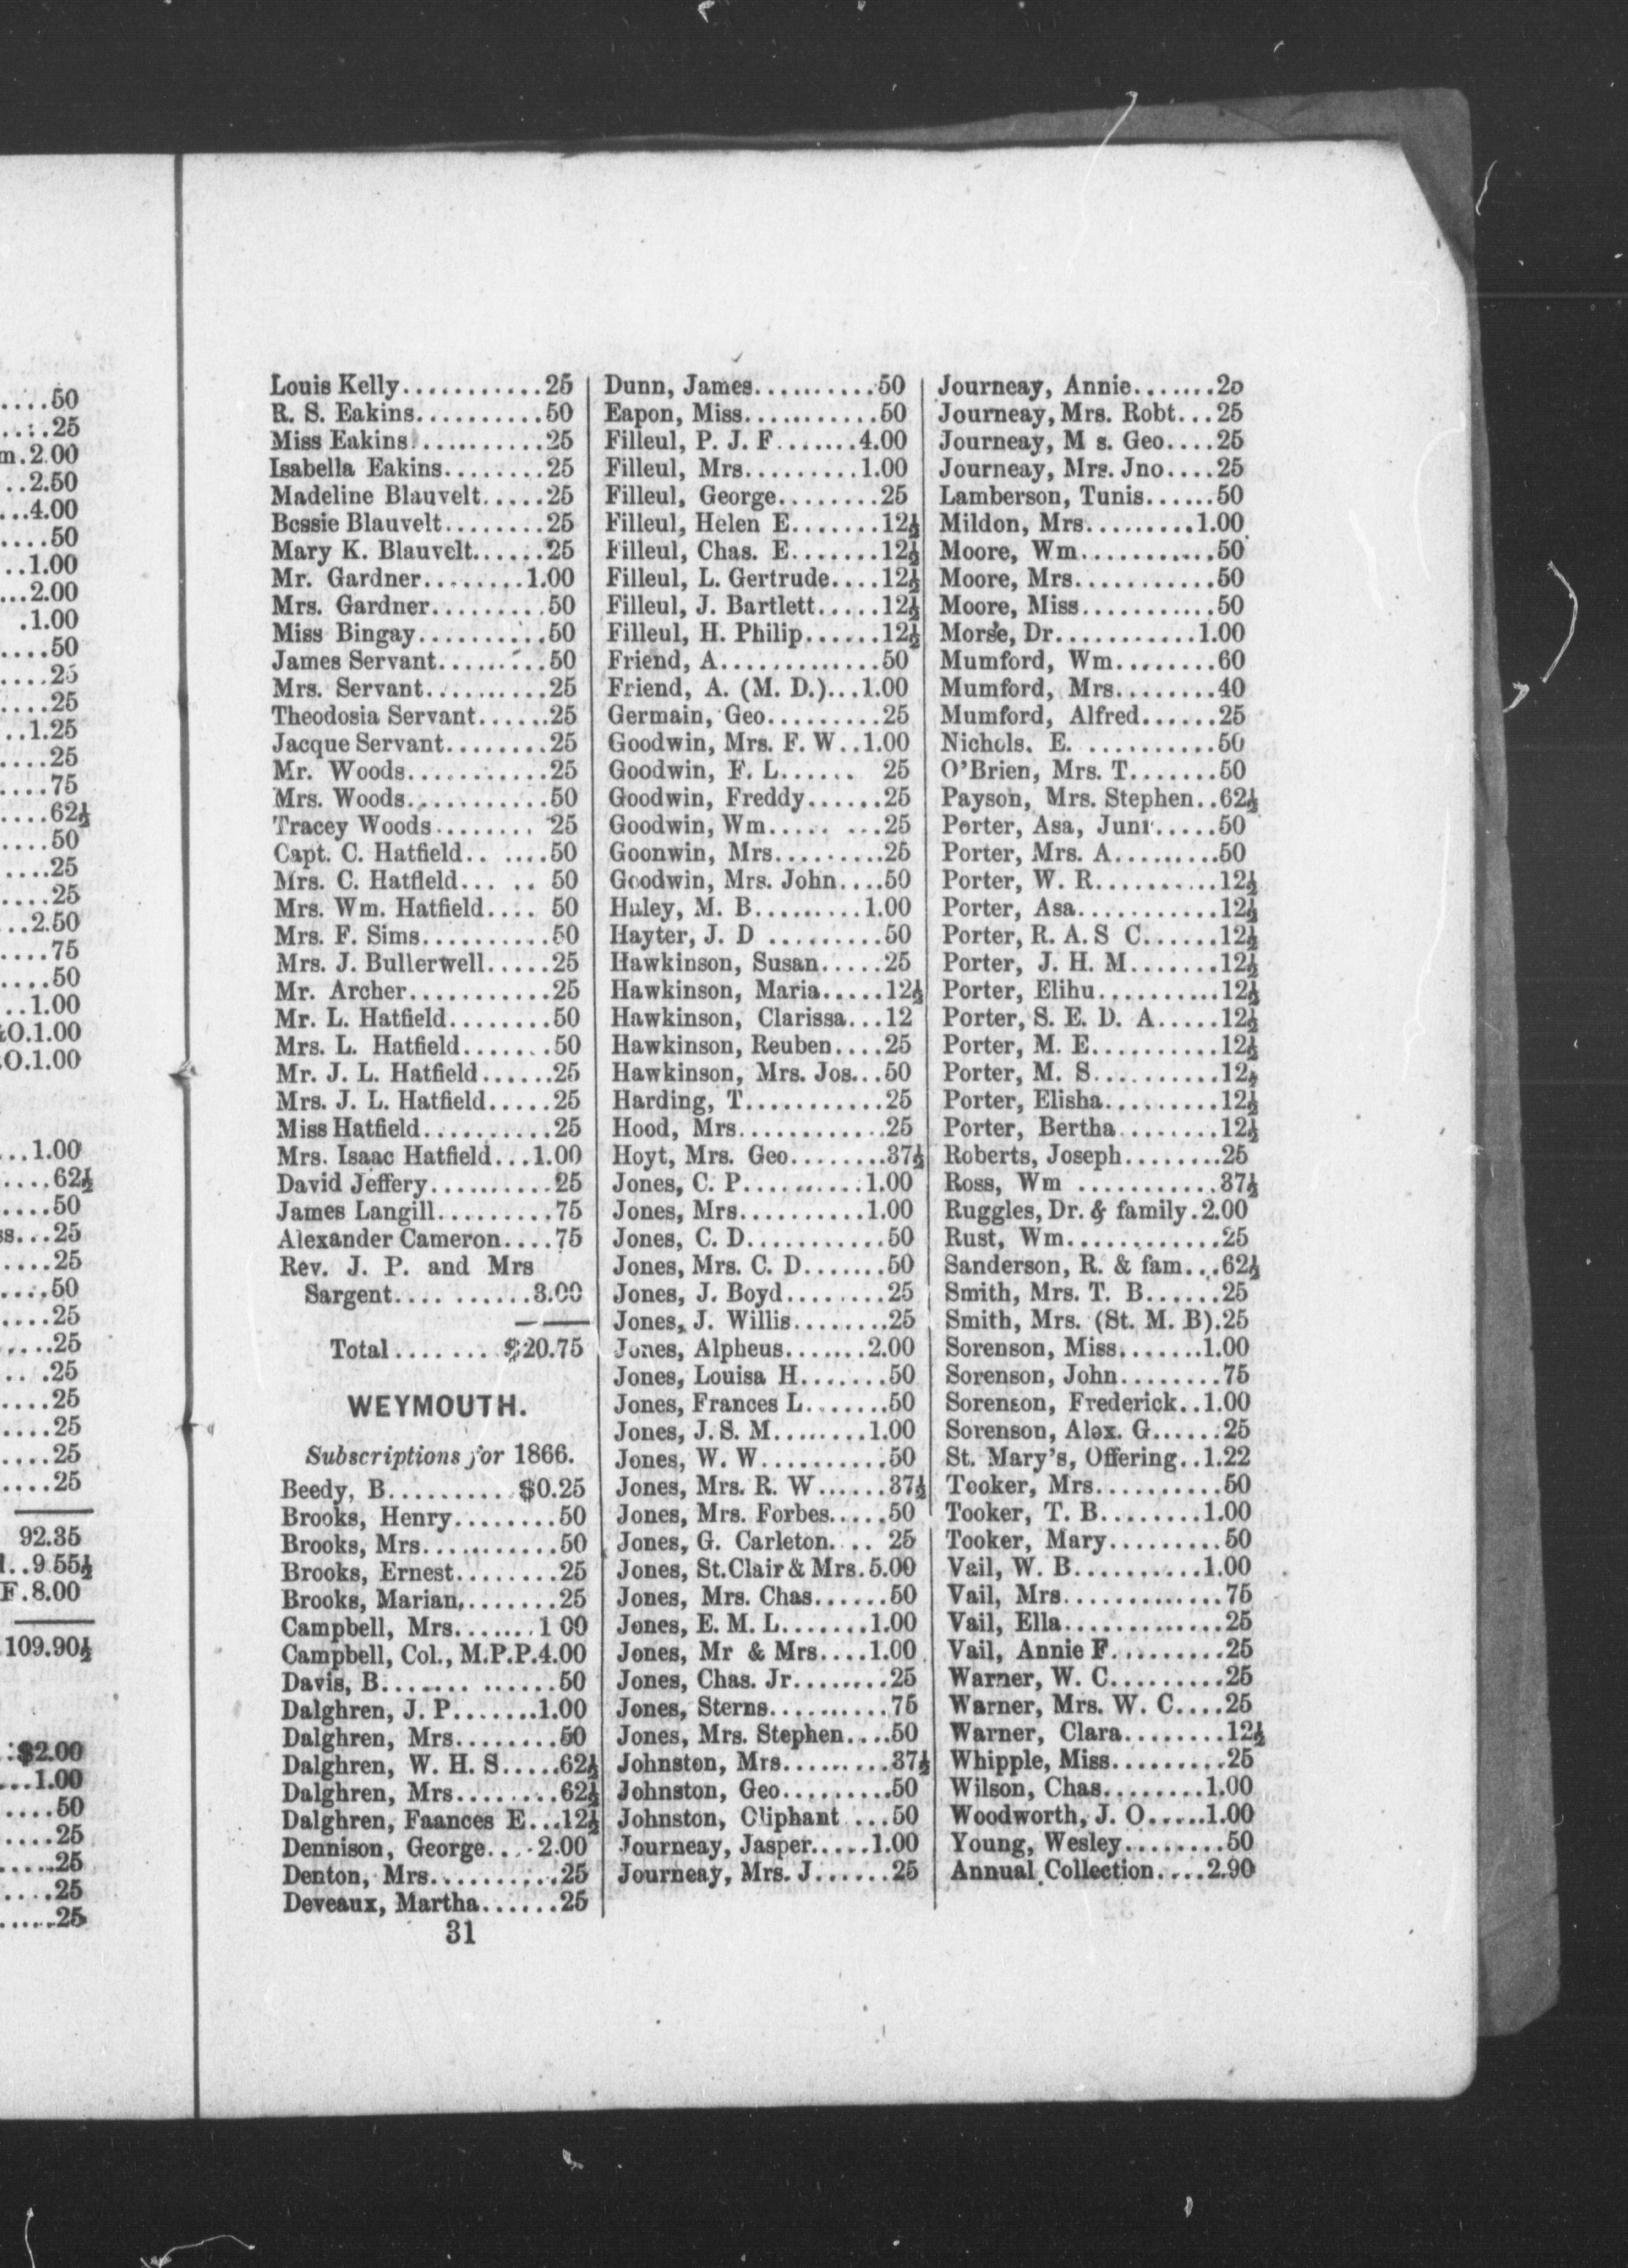 ....50
....25
m.2.00
..2.50
...4.00
....50
..1.00
...2.00
.1.00
....50
....25
....25
..1.25
....25
....75
....62½
....50
....25
....25
...2.50
....75
....50
..1.00
&O.1.00
.O.1.00
...1.00
....62½
....50
ss...25
....25
....50
....25
....25
.. .25
....25
....25
....25
....25
92.35
l..9 55½
F.8.00
109.90½
.:$2.00
...1.00
....50
.....25
.....25
....25
......25
Louis Kelly...........25
R. S. Eakins..........50
Miss Eakins...........25
Isabella Eakins........25
Madeline Blauvelt.....25
Bessie Blauvelt........25
Mary K. Blauvelt......25
Mr. Gardner........1.00
Mrs. Gardner.........50
Miss Bingay..........50
James Servant.........50
Mrs. Servant..........25
Theodosia Servant......25
Jacque Servant........25
Mr. Woods...........25
Mrs. Woods...........50
Tracey Woods........ 25
Capt. C. Hatfield.. ....50
Mrs. C. Hatfield... .. 50
Mrs. Wm. Hatfield.... 50
Mrs. F. Sims..........50
Mrs. J. Bullerwell.....25
Mr. Archer...........25
Mr. L. Hatfield........50
Mrs. L. Hatfield.......50
Mr. J. L. Hatfield......25
Mrs. J. L. Hatfield.....25
Miss Hatfield..........25
Mrs. Isaac Hatfield...1.00
David Jeffery..........25
James Langill.........75
Alexander Cameron....75
Rev. J. P. and Mrs
Sargent.... ......3.00
Total....... $20.75
WEYMOUTH.
Subscriptions for 1866.
Beedy, B.......... $0.25
Brooks, Henry........50
Brooks, Mrs...........50
Brooks, Ernest........25
Brooks, Marian,.......25
Campbell, Mrs.......1 00
Campbell, Col., M.P.P.4.00
Davis, B....... ......50
Dalghren, J. P.......1.00
Dalghren, Mrs........50
Dalghren, W. H. S.....62½
Dalghren, Mrs........62½
Dalghren, Faances E...12½
Dennison, George....2.00
Denton, Mrs..........25
Deveaux, Martha......25
31
Dunn, James..........50
Eapon, Miss...........50
Filleul, P. J. F.......4.00
Filleul, Mrs.........1.00
Filleul, George........25
Filleul, Helen E.......12½
Filleul, Chas. E.......12½
Filleul, L. Gertrude....12½
Filleul, J. Bartlett.....12½
Filleul, H. Philip......12½
Friend, A.............50
Friend, A. (M. D.)...1.00
Germain, Geo.........25
Goodwin, Mrs. F. W..1.00
Goodwin, F. L...... 25
Goodwin, Freddy......25
Goodwin, Wm..... ...25
Goonwin, Mrs.........25
Goodwin, Mrs. John....50
Haley, M. B.........1.00
Hayter, J. D .........50
Hawkinson, Susan.....25
Hawkinson, Maria.....12½
Hawkinson, Clarissa...12
Hawkinson, Reuben....25
Hawkinson, Mrs. Jos...50
Harding, T...........25
Hood, Mrs............25
Hoyt, Mrs. Geo........37½
Jones, C. P..........1.00
Jones, Mrs..........1.00
Jones, C. D...........50
Jones, Mrs. C. D.......50
Jones, J. Boyd........25
Jones, J. Willis........25
Jones, Alpheus.......2.00
Jones, Louisa H.......50
Jones, Frances L.......50
Jones, J. S. M........1.00
Jones, W. W..........50
Jones, Mrs. R. W......37½
Jones, Mrs. Forbes.....50
Jones, G. Carleton. .. 25
Jones, St.Clair & Mrs.5.00
Jones, Mrs. Chas......50
Jones, E. M. L.......1.00
Jones, Mr & Mrs....1.00
Jones, Chas. Jr........25
Jones, Sterns..........75
Jones, Mrs. Stephen....50
Johnston, Mrs.........37½
Johnston, Geo.........50
Johnston, Oliphant ...50
Journeay, Jasper.....1.00
Journeay, Mrs. J......25
Journeay, Annie.......25
Journeay, Mrs. Robt...25
Journeay, M s. Geo....25
Journeay, Mrs. Jno....25
Lamberson, Tunis......50
Mildon, Mrs.........1.00
Moore, Wm...........50
Moore, Mrs...........50
Moore, Miss...........50
Morse, Dr...........1.00
Mumford, Wm........60
Mumford, Mrs........40
Mumford, Alfred......25
Nichols. E. ..........50
O'Brien, Mrs. T.......50
Payson, Mrs. Stephen..62½
Porter, Asa, Junr.....50
Porter, Mrs. A.........50
Porter, W. R..........12½
Porter, Asa...........12½
Porter, R. A. S C......12½
Porter, J. H. M.......12½
Porter, Elihu..........12½
Porter, S. E. D. A.....12½
Porter, M. E..........12½
Porter, M. S..........12½
Porter, Elisha.........12½
Porter, Bertha........12½
Roberts, Joseph........25
Ross, Wm ...........37½
Ruggles, Dr. & family.2.00
Rust, Wm............25
Sanderson, R. & fam...62½
Smith, Mrs. T. B......25
Smith, Mrs. (St. M. B).25
Sorenson, Miss.......1.00
Sorenson, John........75
Sorenson, Frederick..1.00
Sorenson, Alex. G......25
St. Mary's, Offering..1.22
Tooker, Mrs..........50
Tooker, T. B........1.00
Tooker, Mary.........50
Vail, W. B..........1.00
Vail, Mrs.............75
Vail, Ella.............25
Vail, Annie F.........25
Warner, W. C.........25
Warner, Mrs. W. C....25
Warner, Clara........12½
Whipple, Miss.........25
Wilson, Chas........1.00
Woodworth, J. O.....1.00
Young, Wesley........50
Annual Collection....2.90